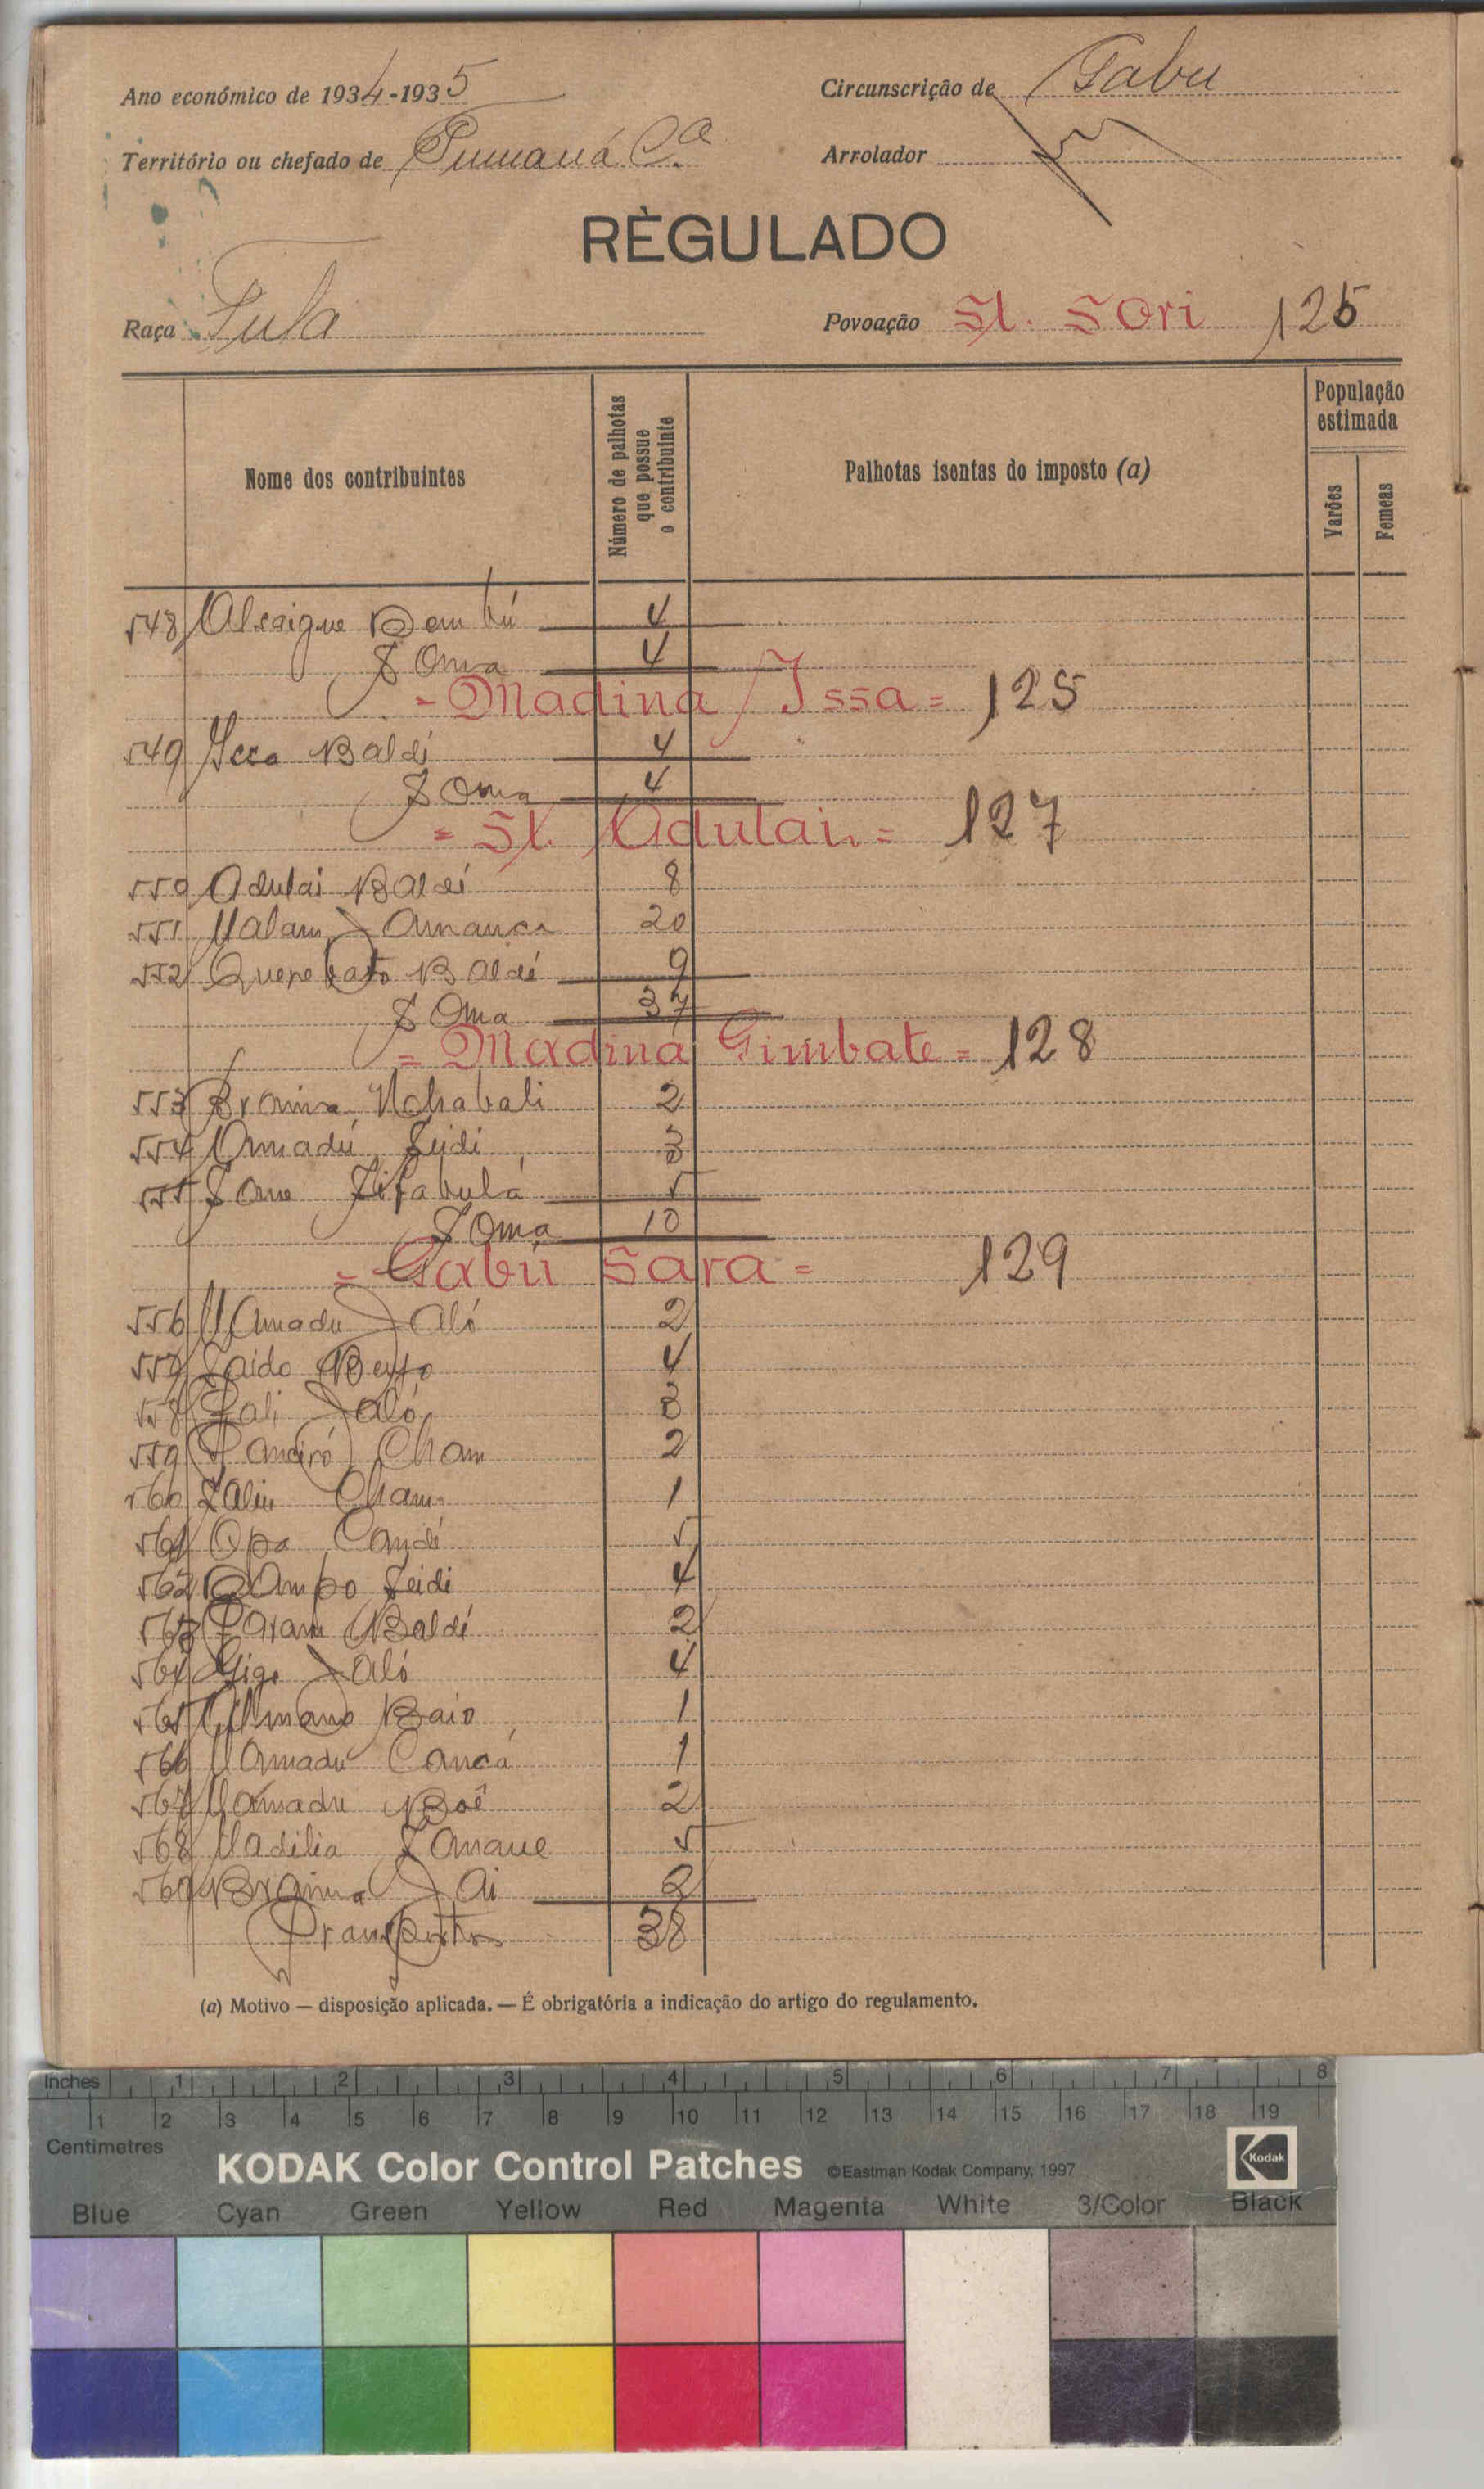 Ano económico de 1934-1935
Circunscrição de Gabu
Território ou chefado de Pumaná Cª
Arrolador
RÈGULADO
Raça Fula
Povoação St. Sori 125
Nome dos contribuintes
Número de palhotas que possue o contribuinte
Palhotas isentas do imposto (a)
População estimada
Varões
Femeas
548 Alsaigue Dembú 4
Soma 4
= Madina Issa = 125
549 Issa Baldé 4
Soma 4
= St. Adulai = 127
550 Adulai Baldé 8
551 Malam Jamanca 20
552 Baldé 9
Soma 37
= Madina Gimbate = 128
553 Braima Nchabali 2
554 Amadú Seidi 3
555 5
Soma 10
= Gabú Sara = 129
556 Mamadu Jaló 2
557 Saido 4
558 Jaló 3
559 Cham 2
560 Saliu Cham 1
561 Opa Candé 5
562 Dampo Seidi 4
563 Baldé 2
564 Gigo Jaló 4
565 Baio 1
566 Mamadu 1
567 Mamadu Boé 2
568 Madilia Samaue 5
569 Braima Jai 2
Transporte 38
(a) Motivo — disposição aplicada. — É obrigatória a indicação do artigo do regulamento.
Inches 1 2 3 4 5 6 7 8
1 2 3 4 5 6 7 8 9 10 11 12 13 14 15 16 17 18 19
Centimetres
KODAK Color Control Patches ©Eastman Kodak Company, 1997 Kodak
Blue Cyan Green Yellow Red Magenta White 3/Color Black